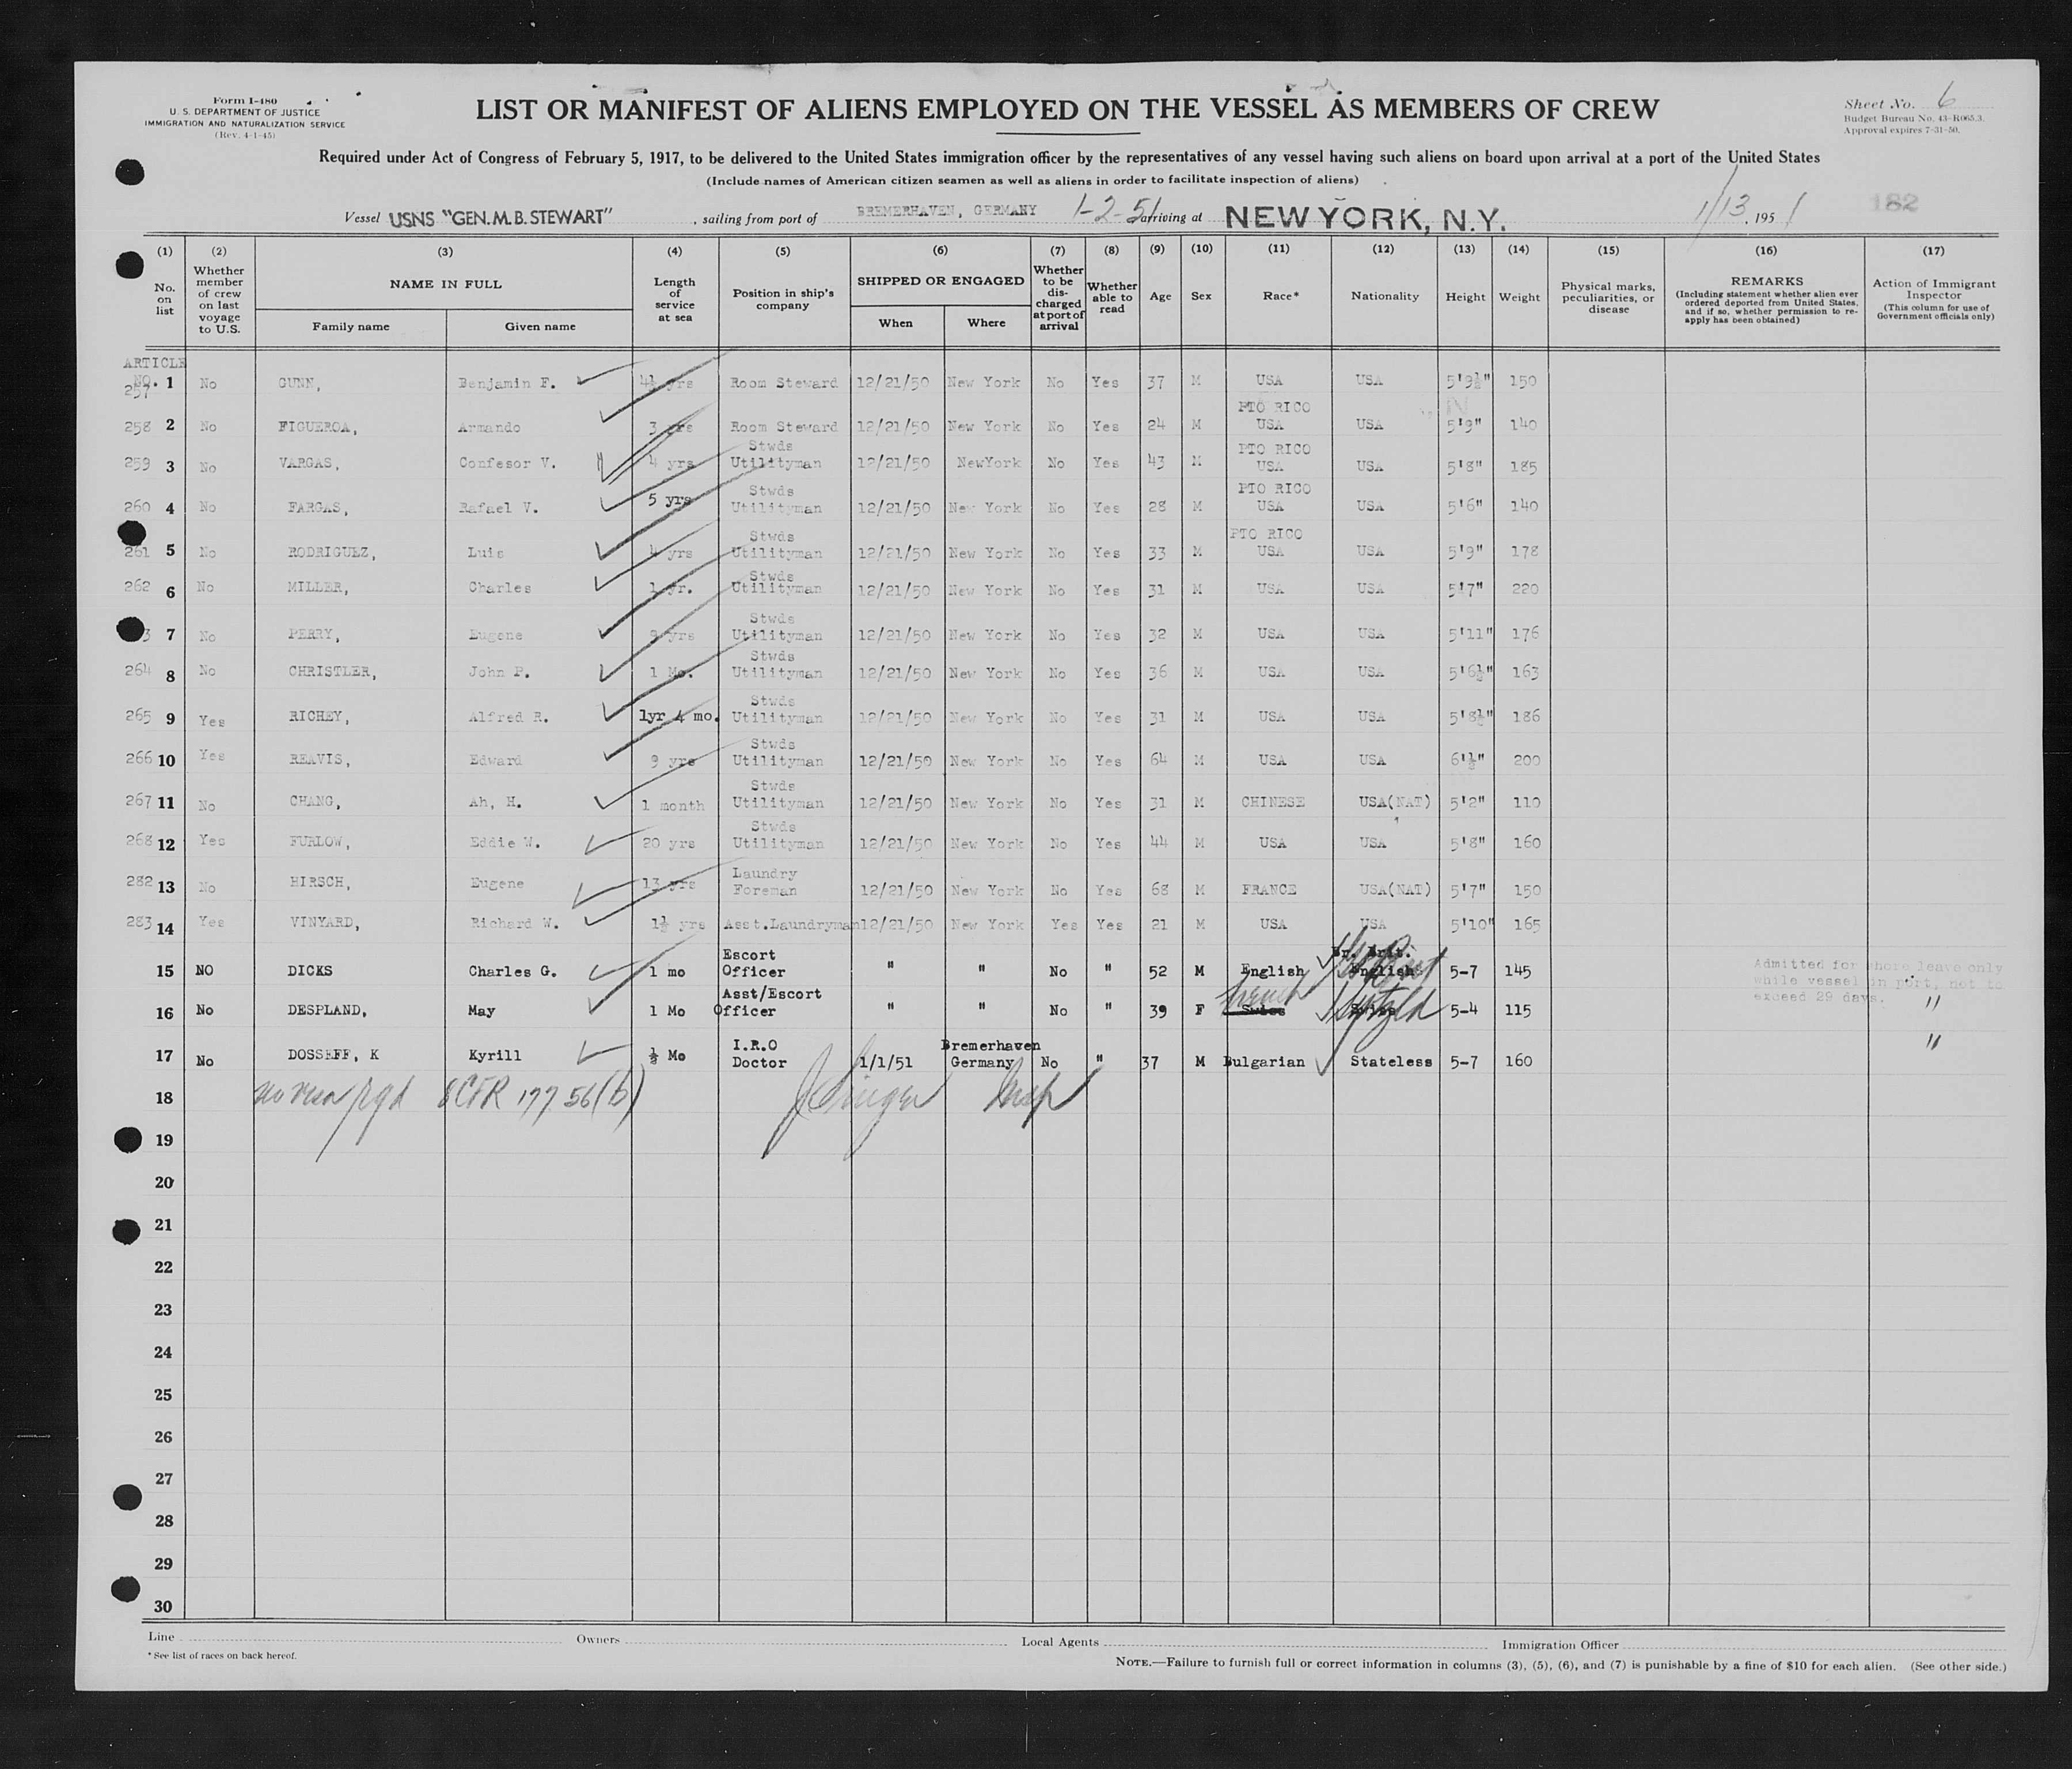 Form I-480
U. S. DEPARTMENT OF JUSTICE
IMMIGRATION AND NATURALIZATION SERVICE
(Rev. 4-1-45)
LIST OR MANIFEST OF ALIENS EMPLOYED ON THE VESSEL AS MEMBERS OF CREW
Sheet No. 6
Budget Bureau No. 43-R065.3.
Approval expires 7-31-50.
Required under Act of Congress of February 5, 1917, to be delivered to the United States immigration officer by the representatives of any vessel having such aliens on board upon arrival at a port of the United States
(Include names of American citizen seamen as well as aliens in order to facilitate inspection of aliens)
Vessel USNS "GEN. M. B. STEWART", sailing from port of BREMERHAVEN, GERMANY 1-2-51 arriving at NEW YORK, N.Y. 1/13, 1951 182
(1) (2) (3) (4) (5) (6) (7) (8) (9) (10) (11) (12) (13) (14) (15) (16) (17)
No. on list
Whether member of crew on last voyage to U.S.
NAME IN FULL
Family name
Given name
Length of service at sea
Position in ship's company
SHIPPED OR ENGAGED
When
Where
Whether to be discharged at port of arrival
Whether able to read
Age
Sex
Race*
Nationality
Height
Weight
Physical marks, peculiarities, or disease
REMARKS
(Including statement whether alien ever ordered deported from United States, and if so, whether permission to re-apply has been obtained)
Action of Immigrant Inspector
(This column for use of Government officials only)
ARTICLE NO.
257 1 No GUNN, Benjamin F. 4½ yrs Room Steward 12/21/50 New York No Yes 37 M USA USA 5'9½" 150
258 2 No FIGUEROA, Armando 3 yrs Room Steward 12/21/50 New York No Yes 24 M PTO RICO USA USA 5'9" 140
259 3 No VARGAS, Confesor V. 4 yrs Stwds Utilityman 12/21/50 NewYork No Yes 43 M PTO RICO USA USA 5'8" 185
260 4 No FARGAS, Rafael V. 5 yrs Stwds Utilityman 12/21/50 New York No Yes 28 M PTO RICO USA USA 5'6" 140
261 5 No RODRIGUEZ, Luis 4 yrs Stwds Utilityman 12/21/50 New York No Yes 33 M PTO RICO USA USA 5'9" 178
262 6 No MILLER, Charles 1 yr. Stwds Utilityman 12/21/50 New York No Yes 31 M USA USA 5'7" 220
3 7 No PERRY, Eugene 9 yrs Stwds Utilityman 12/21/50 New York No Yes 32 M USA USA 5'11" 176
264 8 No CHRISTLER, John P. 1 Mo. Stwds Utilityman 12/21/50 New York No Yes 36 M USA USA 5'6½" 163
265 9 Yes RICHEY, Alfred R. 1yr 4 mo. Stwds Utilityman 12/21/50 New York No Yes 31 M USA USA 5'8½" 186
266 10 Yes REAVIS, Edward 9 yrs Stwds Utilityman 12/21/50 New York No Yes 64 M USA USA 6'½" 200
267 11 No CHANG, Ah, H. 1 month Stwds Utilityman 12/21/50 New York No Yes 31 M CHINESE USA(NAT) 5'2" 110
268 12 Yes FURLOW, Eddie W. 20 yrs Stwds Utilityman 12/21/50 New York No Yes 44 M USA USA 5'8" 160
282 13 No HIRSCH, Eugene 13 yrs Laundry Foreman 12/21/50 New York No Yes 68 M FRANCE USA(NAT) 5'7" 150
283 14 Yes VINYARD, Richard W. 1½ yrs Asst.Laundryman 12/21/50 New York Yes Yes 21 M USA USA 5'10" 165
15 NO DICKS Charles G. 1 mo Escort Officer " " No " 52 M English Br. Brit. English 5-7 145 Admitted for shore leave only while vessel in port, not to exceed 29 days.
16 No DESPLAND, May 1 Mo Asst/Escort Officer " " No " 39 F French Swiss Swiss 5-4 115 "
17 No DOSSEFF, K Kyrill ½ Mo I.R.O Doctor 1/1/51 Bremerhaven Germany No " 37 M Bulgarian Stateless 5-7 160 "
18 no visa rqd 8 CFR 177 56(b) Insp
19
20
21
22
23
24
25
26
27
28
29
30
Line Owners Local Agents Immigration Officer
*See list of races on back hereof.
NOTE.—Failure to furnish full or correct information in columns (3), (5), (6), and (7) is punishable by a fine of $10 for each alien. (See other side.)